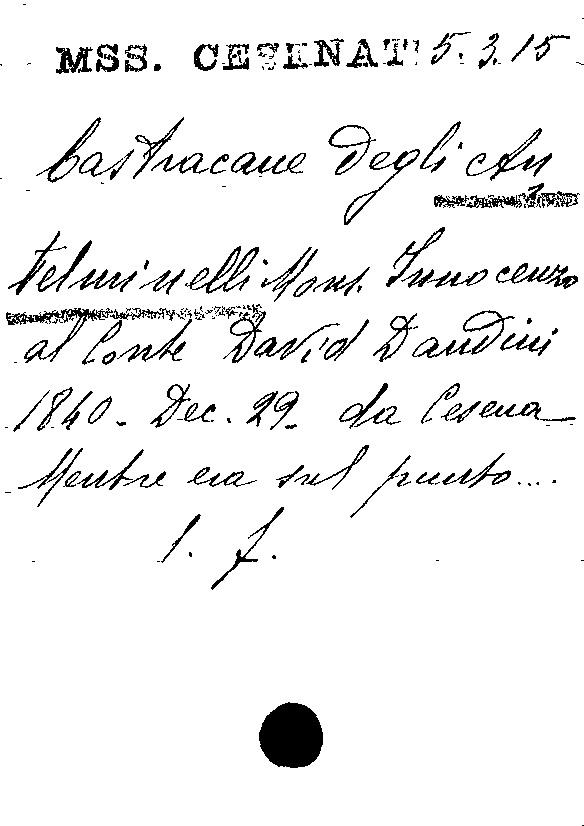 MSS. CESENATI 5.3.15
Castracane degli An
telminelli Mons. Innocenzo
al Conte David Dandini
1840 - Dec. 29 - da Cesena
Mentre era sul punto....
1. f.